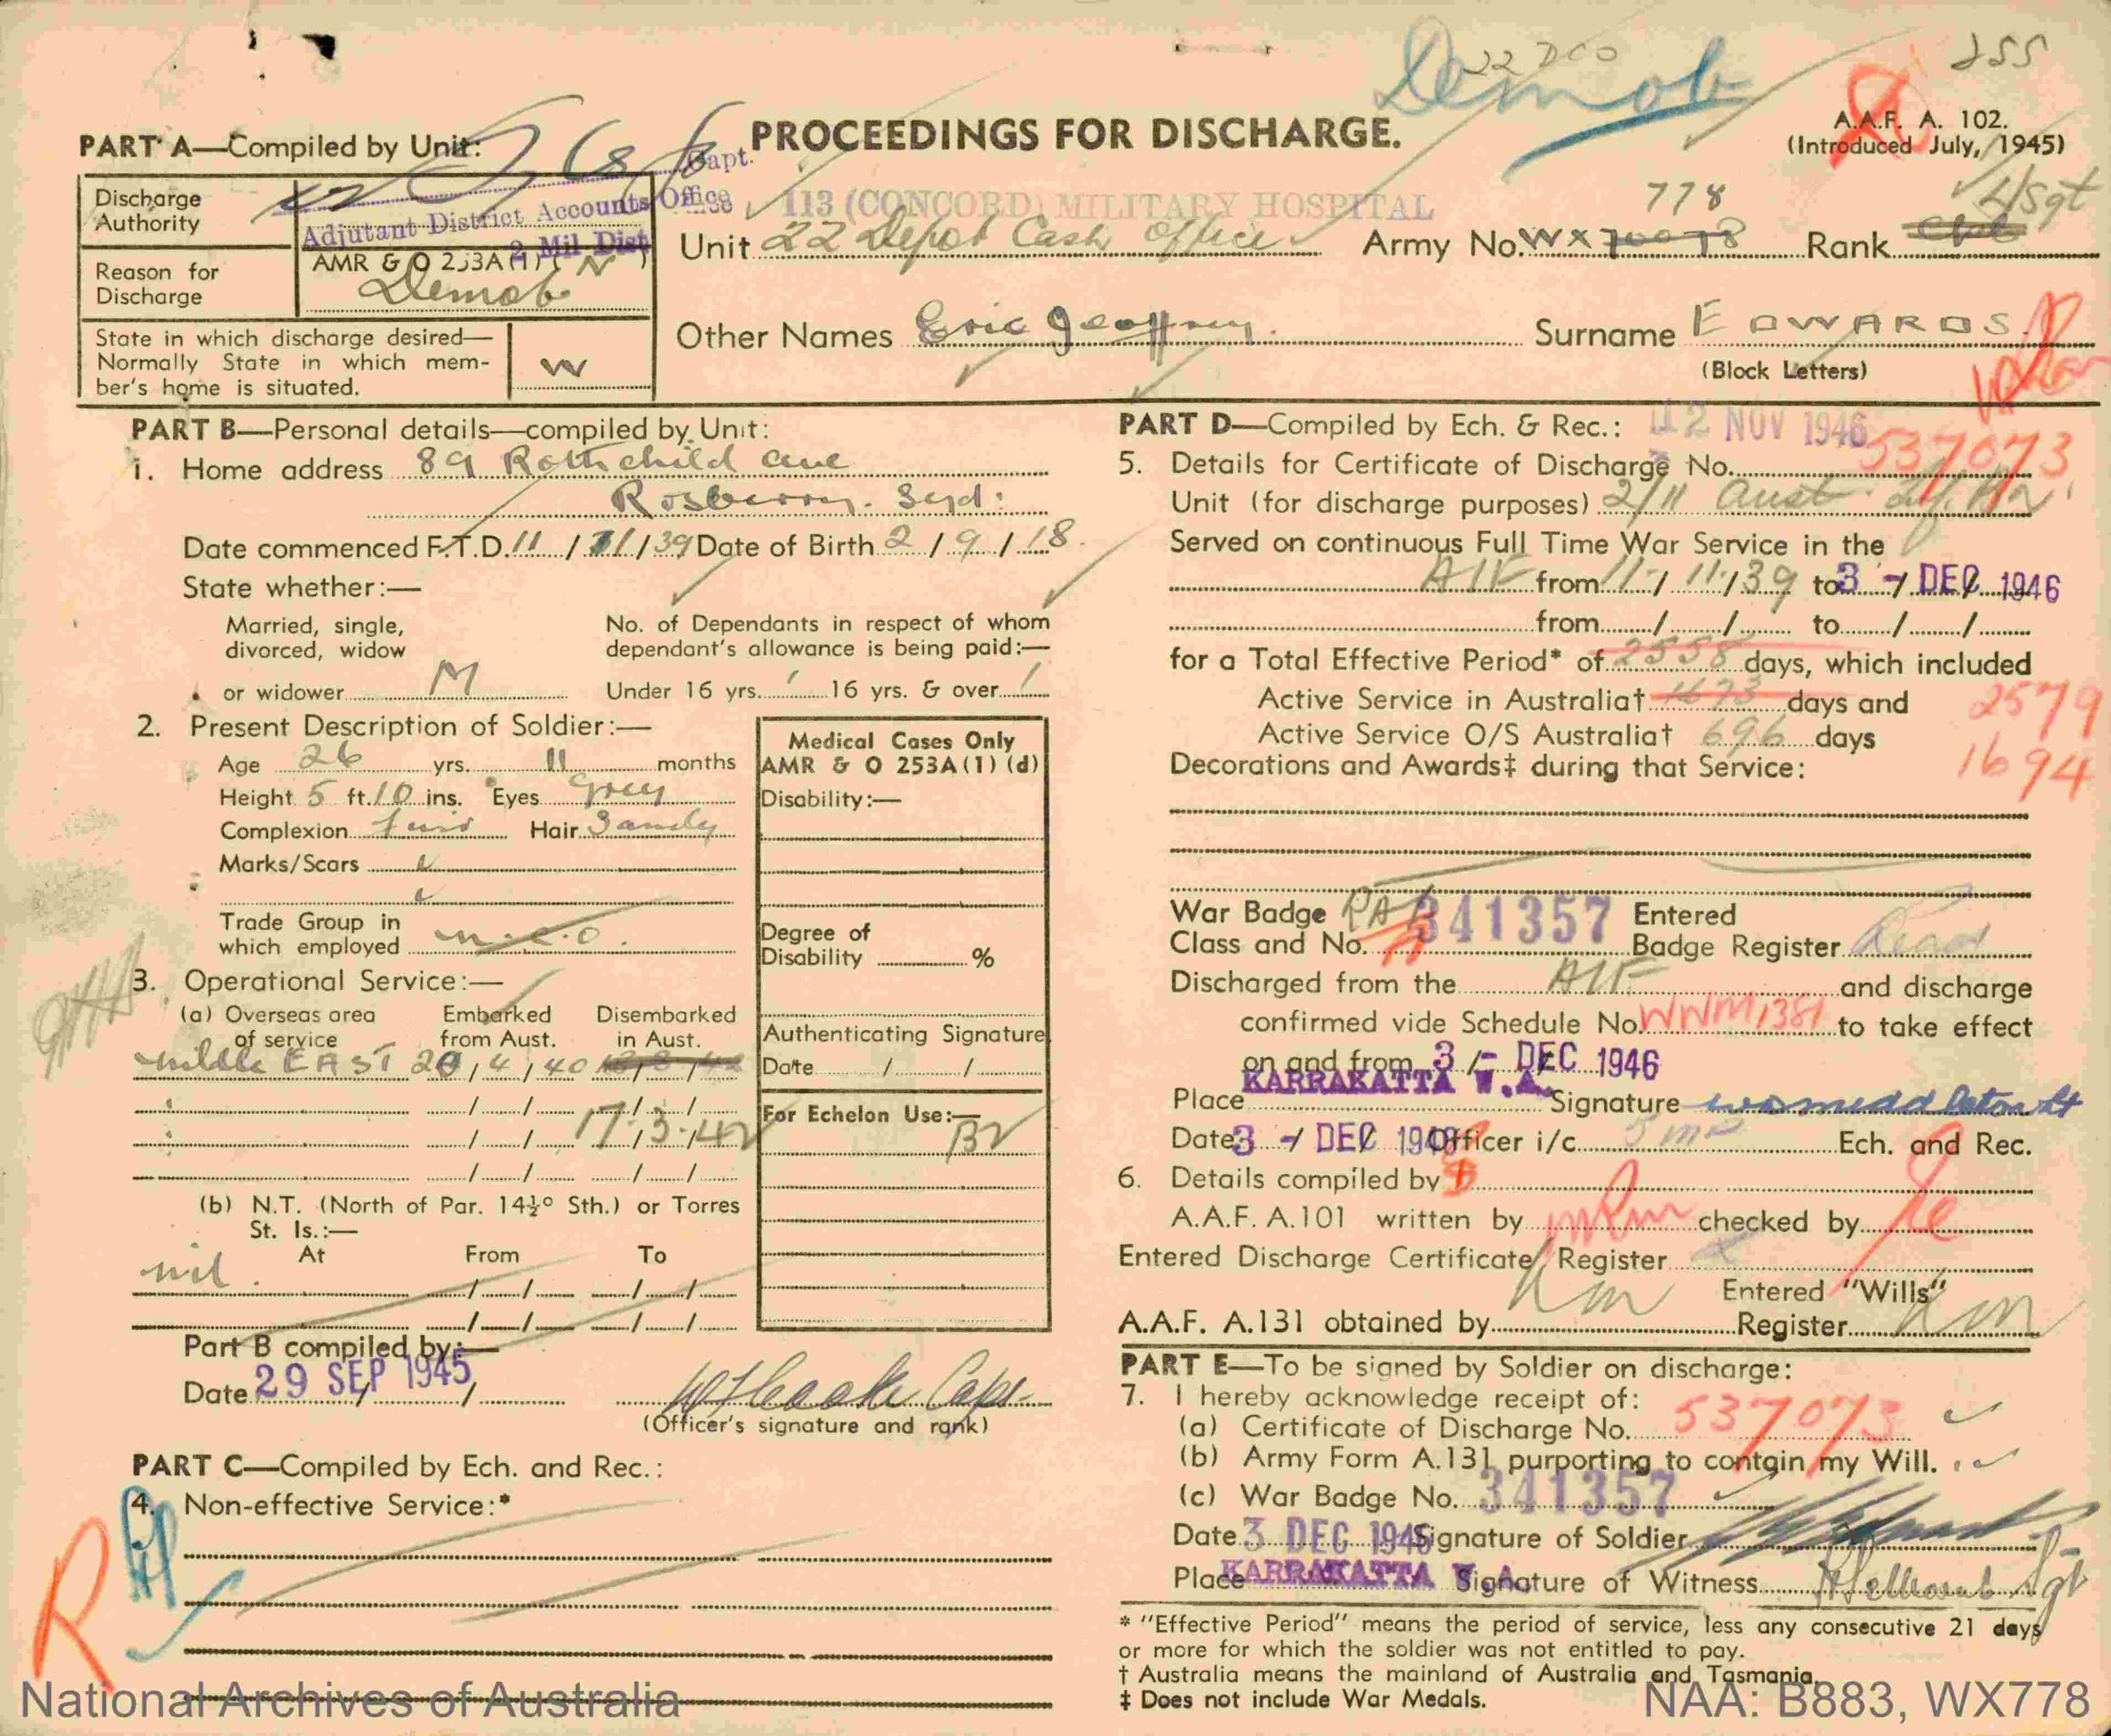 22 DCO
Demob
255
PROCEEDINGS FOR DISCHARGE.
A.A.F. A. 102.
(Introduced July, 1945)
PART A—Compiled by Unit:
Capt.
Adjutant District Accounts Office
2 Mil Dist
Discharge
Authority
AMR & O 253A(1)( )
Reason for
Discharge
Demob
State in which discharge desired—
Normally State in which mem-
ber's home is situated.
W
113 (CONCORD) MILITARY HOSPITAL
Unit 22 Depot Cash Office
778
Army No. WX
L/Sgt
Rank Cpl
Other Names Eric Geoffrey.
Surname EDWARDS.
(Block Letters)
PART B—Personal details—compiled by Unit:
1. Home address 89 Rothchild ave
Rosberry. Syd:
Date commenced F.T.D. 11/11/39 Date of Birth 2/9/18
State whether:—
Married, single,
divorced, widow
or widower M
No. of Dependants in respect of whom
dependant's allowance is being paid:—
Under 16 yrs. / 16 yrs. & over /
2. Present Description of Soldier:—
Age 26 yrs. 11 months
Height 5 ft. 10 ins. Eyes Grey
Complexion Hair Sandy
Marks/Scars
Trade Group in
which employed n.c.o.
Medical Cases Only
AMR & O 253A(1)(d)
Disability:—
Degree of
Disability %
Authenticating Signature
Date / /
For Echelon Use:—
3. Operational Service:—
(a) Overseas area
of service
Embarked
from Aust.
Disembarked
in Aust.
middle EAST 20/4/40
17/3/42
(b) N.T. (North of Par. 14½° Sth.) or Torres
St. Is.:—
At From To
nil.
Part B compiled by:—
Date 29 SEP 1945
(Officer's signature and rank)
PART C—Compiled by Ech. and Rec.:
4. Non-effective Service:*
R
PART D—Compiled by Ech. & Rec.: 12 NOV 1946
5. Details for Certificate of Discharge No. 537073
Unit (for discharge purposes) 2/11 Aust. Inf. Bn.
Served on continuous Full Time War Service in the
AIF from 11/11/39 to 3 - DEC 1946
from / / to / /
for a Total Effective Period* of 2558 days, which included
Active Service in Australia† 1673 days and
2579
Active Service O/S Australia† 696 days
1694
Decorations and Awards‡ during that Service:
War Badge
Class and No. RAS 341357
Entered
Badge Register
Discharged from the AIF and discharge
confirmed vide Schedule No. WWM1381 to take effect
on and from 3 - DEC 1946
Place KARRAKATTA W.A. Signature
Date 3 - DEC 1946 Officer i/c Ech. and Rec.
6. Details compiled by
A.A.F. A.101 written by checked by
Entered Discharge Certificate Register
Entered "Wills"
A.A.F. A.131 obtained by Register
PART E—To be signed by Soldier on discharge:
7. I hereby acknowledge receipt of:
(a) Certificate of Discharge No. 537073
(b) Army Form A.131 purporting to contain my Will.
(c) War Badge No. 341357
Date 3 DEC 1946 Signature of Soldier
Place KARRAKATTA W.A. Signature of Witness Sgt
* "Effective Period" means the period of service, less any consecutive 21 days
or more for which the soldier was not entitled to pay.
† Australia means the mainland of Australia and Tasmania.
‡ Does not include War Medals.
National Archives of Australia
NAA: B883, WX778